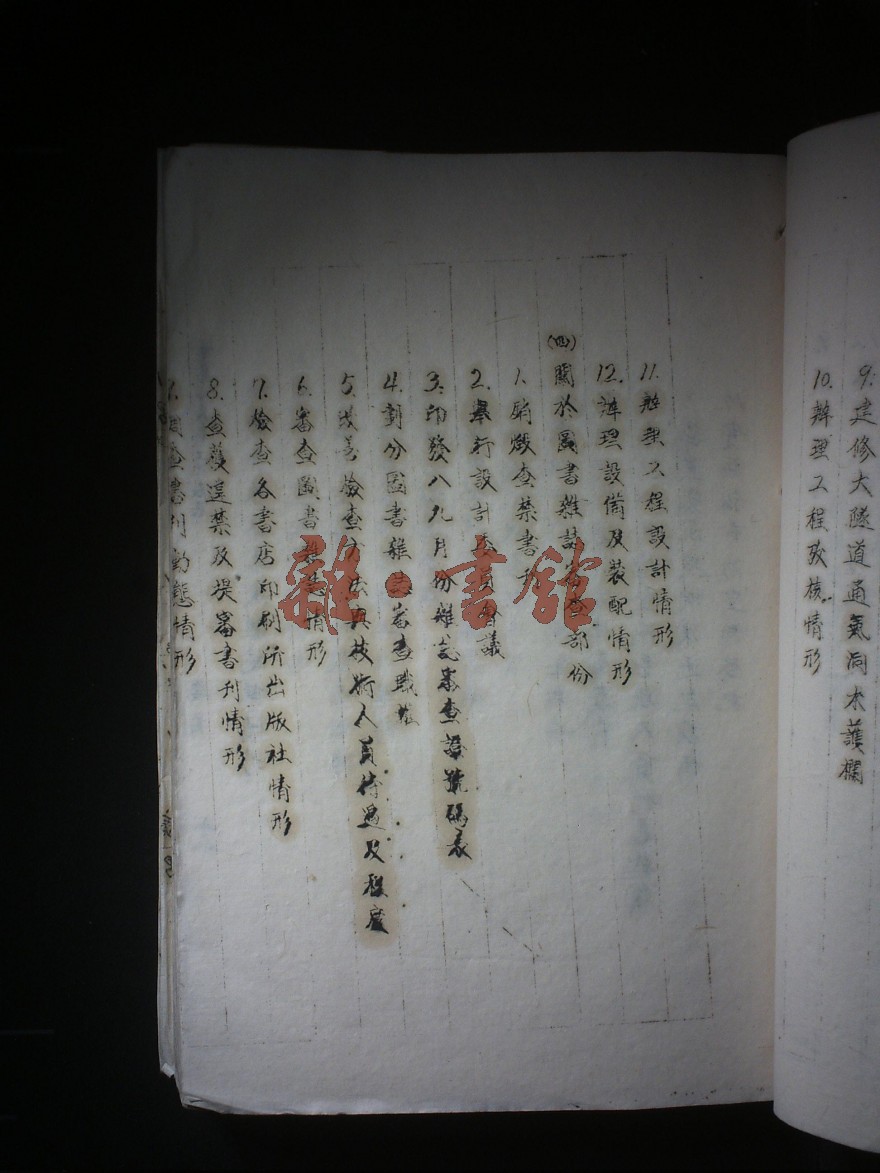 9.建修大隧道通氣洞木護欄
10.辦理工程考核情形
11.辦理工程設計情形
12.辦理設備及裝配情形
(四)關於圖書雜誌審查部份
1.銷燬查禁書刊
2.舉行設計委員會議
3.印發八九月份雜誌審查證號碼表
4.劃分圖書雜誌審查職
5.改善檢查方法與技術人員待遇及程度
6.審查圖書雜誌情形
7.檢查各書店印刷所出版社情形
8.查獲違禁及提審書刊情形
查書刊動態情形
雜·書館